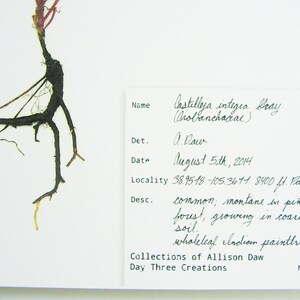 Name Castilleja integra Gray
(Orobanchaceae)
Det. A Daw
Date August 5th, 2014
Locality 38.9598 -105.3699 8400 ft
Desc. common; montane in
forest, growing in
soil.
wholeleaf Indian
Collections of Allison Daw
Day Three Creations